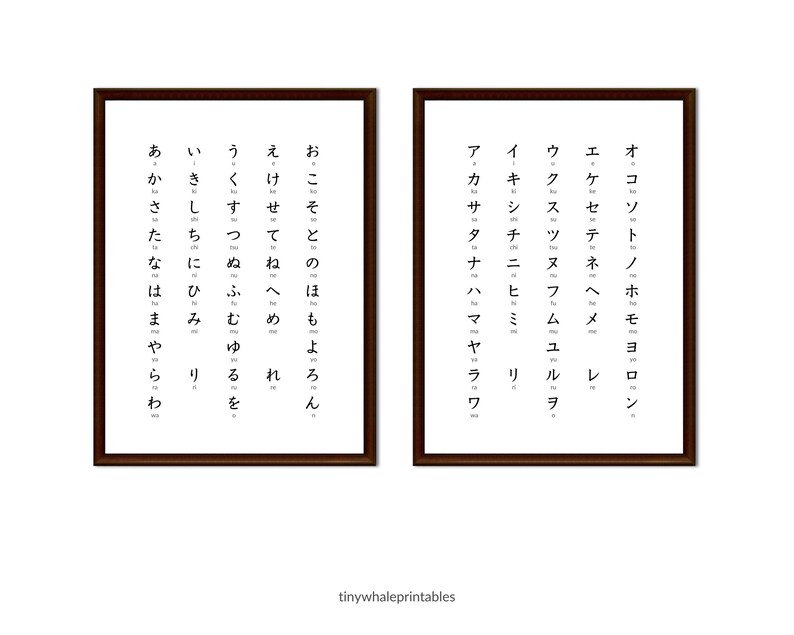 あ い う え お
a i u e o
か き く け こ
ka ki ku ke ko
さ し す せ そ
sa shi su se so
た ち つ て と
ta chi tsu te to
な に ぬ ね の
na ni nu ne no
は ひ ふ へ ほ
ha hi fu he ho
ま み む め も
ma mi mu me mo
や ゆ よ
ya yu yo
ら り る れ ろ
ra ri ru re ro
わ を ん
wa o n
ア イ ウ エ オ
a i u e o
カ キ ク ケ コ
ka ki ku ke ko
サ シ ス セ ソ
sa shi su se so
タ チ ツ テ ト
ta chi tsu te to
ナ ニ ヌ ネ ノ
na ni nu ne no
ハ ヒ フ ヘ ホ
ha hi fu he ho
マ ミ ム メ モ
ma mi mu me mo
ヤ ユ ヨ
ya yu yo
ラ リ ル レ ロ
ra ri ru re ro
ワ ヲ ン
wa o n
tinywhaleprintables